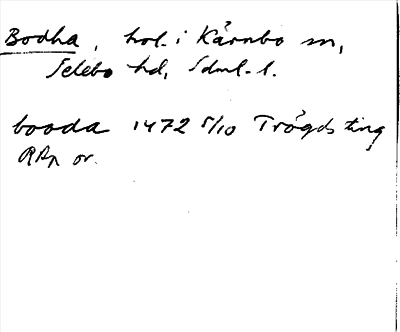 Bodha, hol. i Kärnbo sn,
Selebo hd, Sdml. l.
booda 1472 5/10 Trögds ting
RAp or.